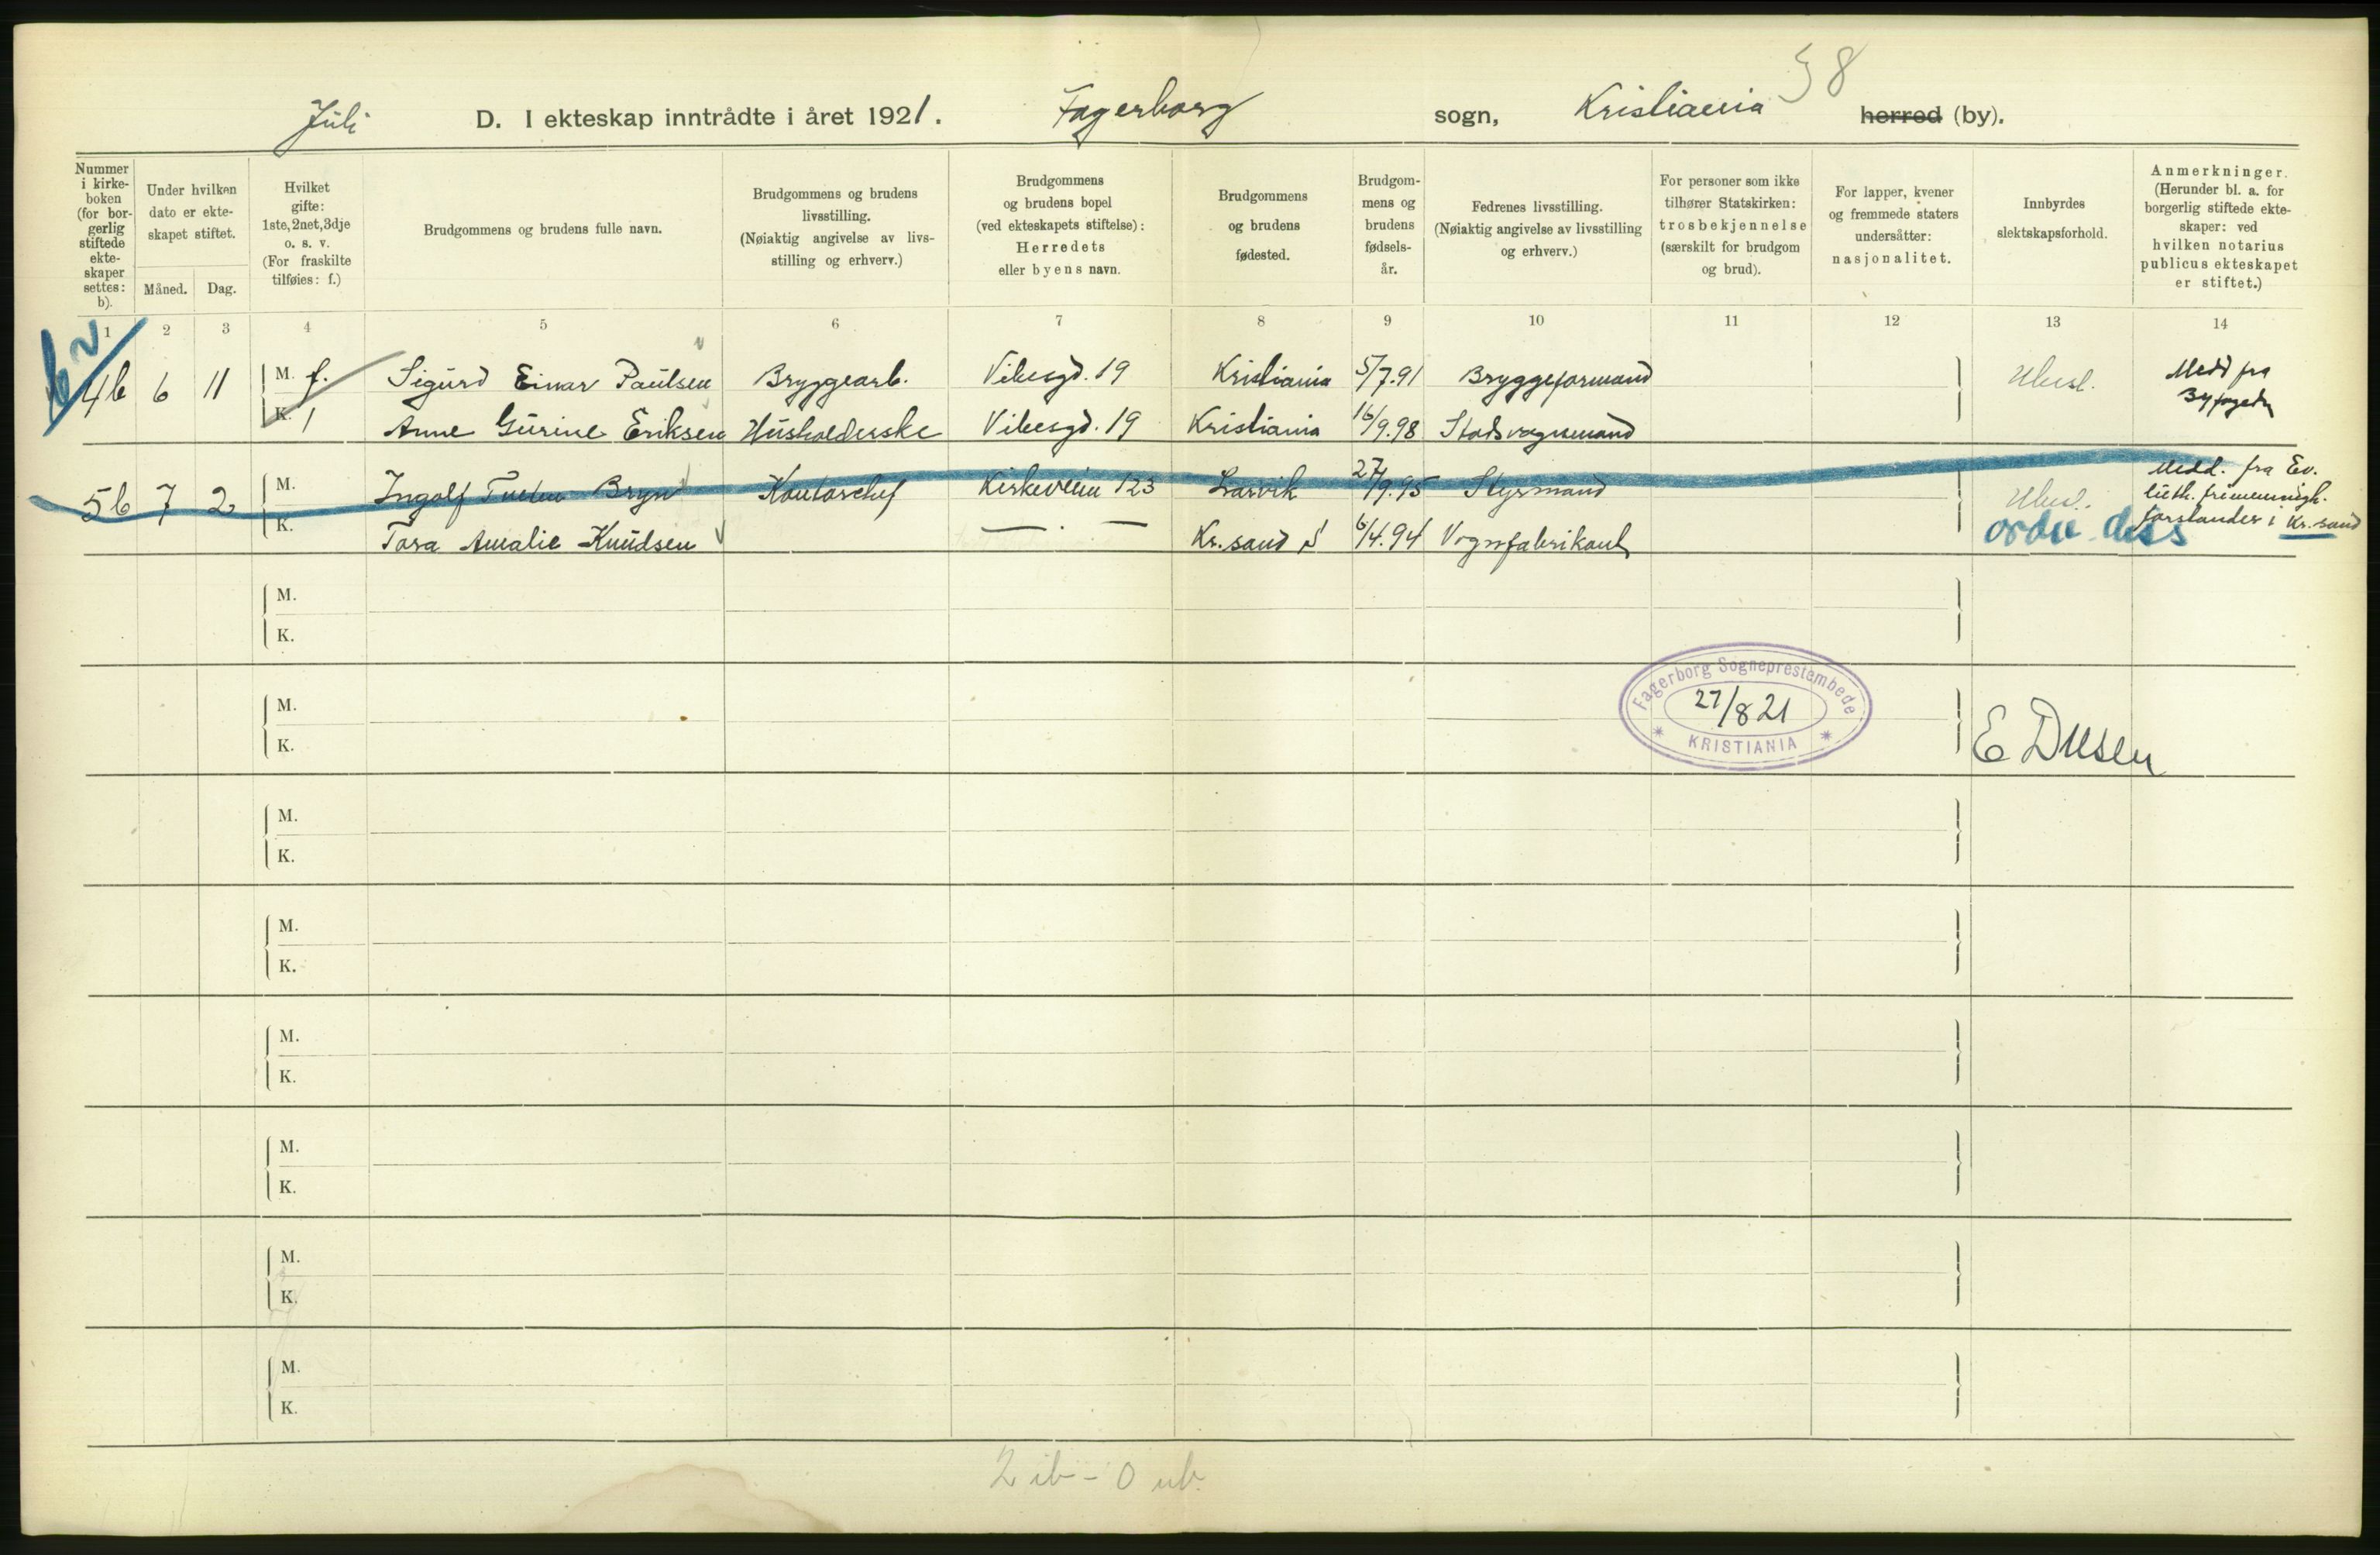 38
Juli D. I ekteskap inntrådte i året 1921. Fagerborg sogn, Kristiania herred (by).
Nummer i kirke- boken (for bor- gerlig stiftede ekte- skaper settes: b).
Under hvilken dato er ekte- skapet stiftet.
Måned. Dag.
Hvilket gifte: 1ste, 2net, 3dje o. s. v. (For fraskilte tilføies: f.)
Brudgommens og brudens fulle navn.
Brudgommens og brudens livsstilling. (Nøiaktig angivelse av livs- stilling og erhverv.)
Brudgommens og brudens bopel (ved ekteskapets stiftelse): Herredets eller byens navn.
Brudgommens og brudens fødested.
Brudgom- mens og brudens fødsels- år.
Fedrenes livsstilling. (Nøiaktig angivelse av livsstilling og erhverv.)
For personer som ikke tilhører Statskirken: trosbekjennelse (særskilt for brudgom og brud).
For lapper, kvener og fremmede staters undersåtter: nasjonalitet.
Innbyrdes slektskapsforhold.
Anmerkninger. (Herunder bl. a. for borgerlig stiftede ekte- skaper: ved hvilken notarius publicus ekteskapet er stiftet.)
1 2 3 4 5 6 7 8 9 10 11 12 13 14
4b 6 11 M. f. Sigurd Einar Paulsen Bryggearb. Vibesgd. 19 Kristiania 5/7.91 Bryggeformand Ubesl. Medd fra Byfogden
K. 1 Anne Gurine Eriksen Husholderske Vibesgd. 19 Kristiania 16/9.98 Stadsvognmand
5b 7 2 M. Ingolf Bryn Kontorchef Kirkeveien 123 Larvik 27/9.95 Styrmand Ubesl. Medd. fra Ev. luth. frimenigh. forstander i Kr.sand
K. Tora Amalie Knudsen — . — Kr.sand S 6/4.94 Vognfabrikant
M.
K.
M.
K.
Fagerborg Sogneprestembede
27/8 21
KRISTIANIA
M.
K.
M.
K.
M.
K.
M.
K.
M.
K.
M.
K.
2 ib - 0 ub.